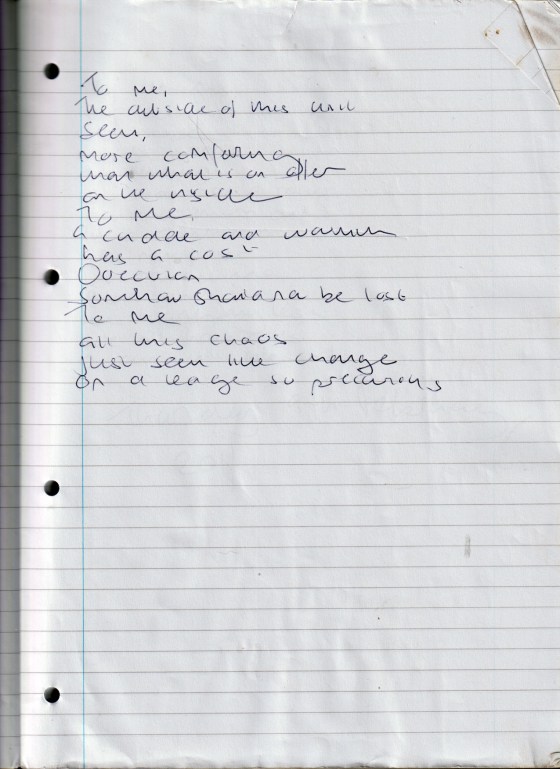 To me,
The outside of this unit
seem,
more comforting
than what is on offer
on the inside
To me,
a cuddle and warmth
has a cost
be lost
To me
all this chaos
just seem like change
on a ledge so precarious